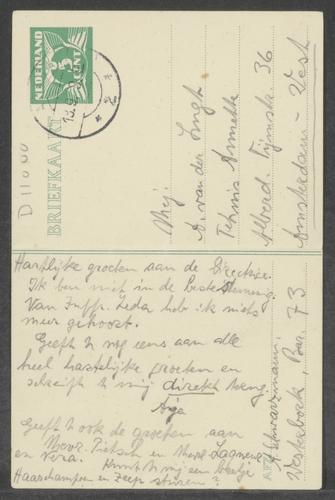 NEDERLAND
5
CENT
BRIEFKAART
D 11000
Mej.
A. van der Lingt
Tehuis Annette
Alberd. Tijmstr. 36
Amsterdam-West
Hartelijke groeten aan de Directrice.
Ik ben niet in de beste stemming.
Van Juffr. Leda heb ik niets
meer gehoord.
Geeft U nog eens aan alle
heel hartelijke groeten en
schrijft U mij direkt weng
Aga
Geeft U ook de groeten aan
Mevr. Tietsch en Mevr. Lagneur
en Vera. Kunt U mij een beetje
Haarschampoo en Zeep sturen?
A. Schwarzmann
Westerbork, Bar. 73